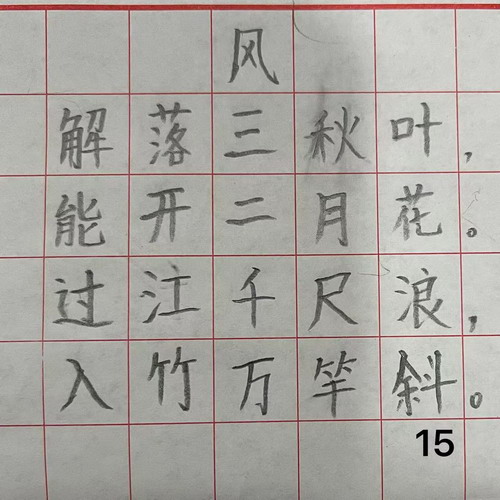 风
解落三秋叶，
能开二月花。
过江千尺浪，
入竹万竿斜。
15